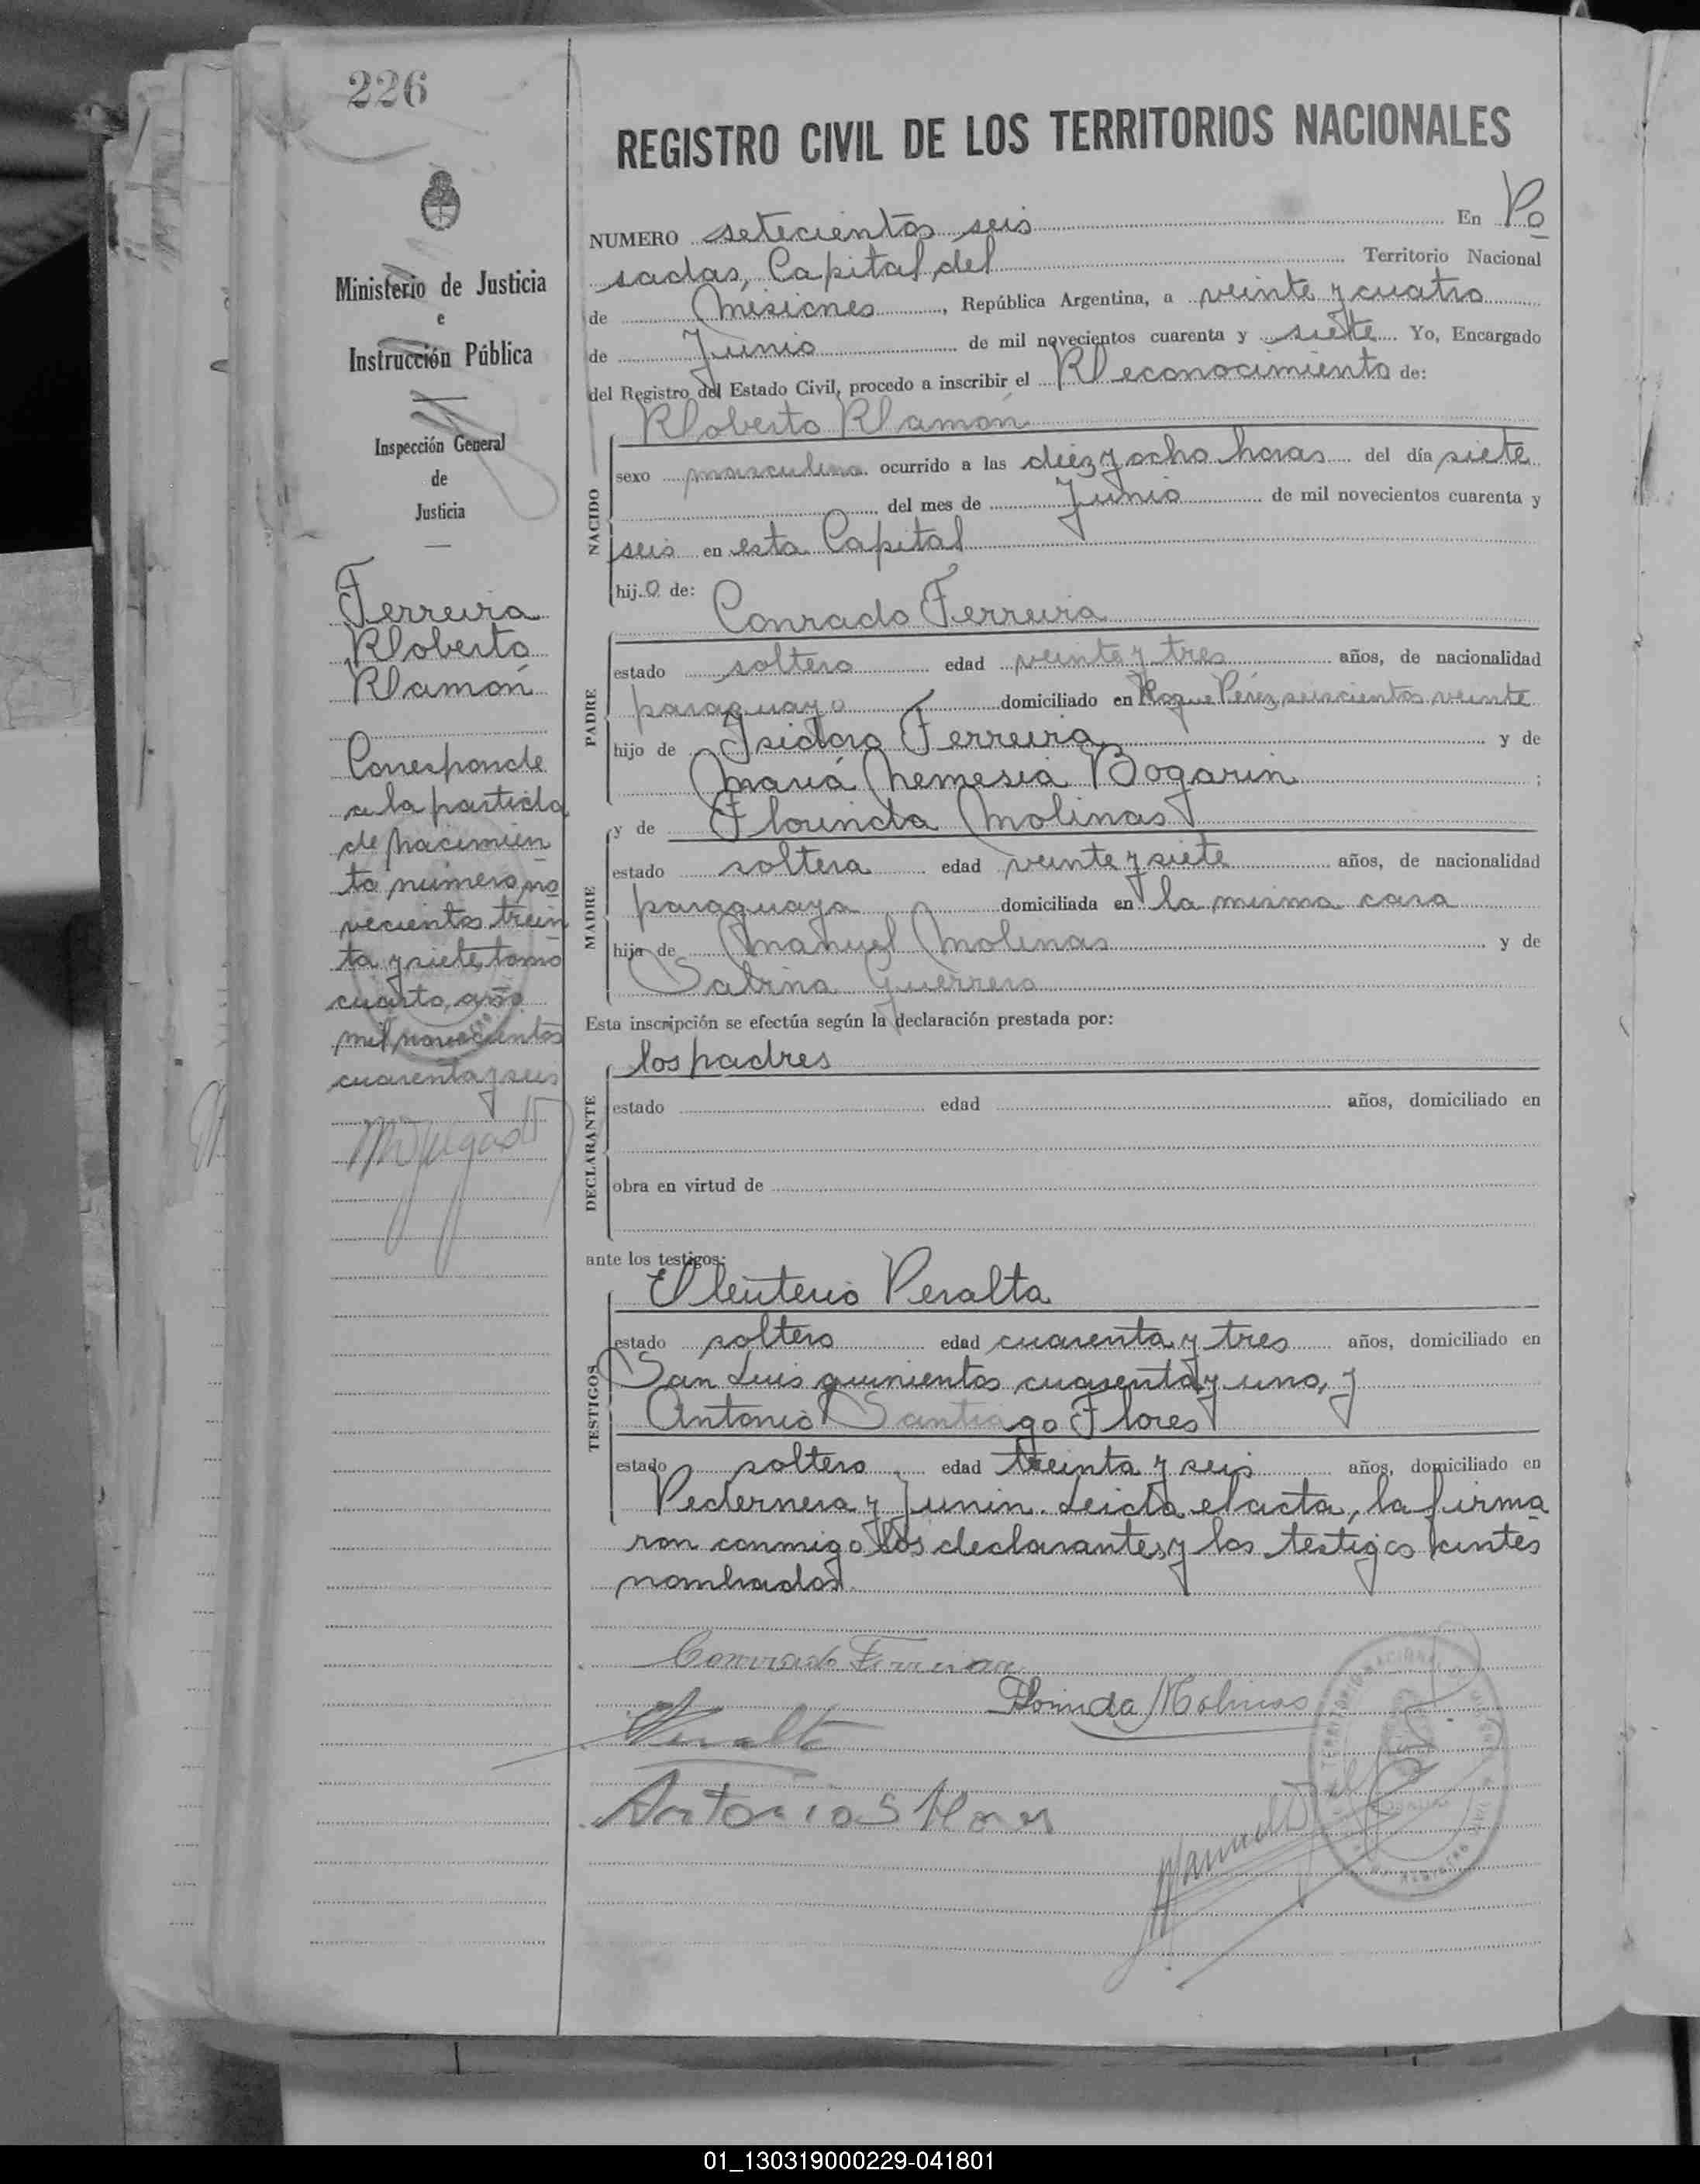 226
Ministerio de Justicia
e
Instrucción Pública
Inspección General
de
Justicia
Ferreira
Roberto
Ramón
Corresponde
a la partida
de nacimien
to número no
vecientos trein
ta y siete, tomo
cuarto, año
mil novecientos
cuarenta y seis
REGISTRO CIVIL DE LOS TERRITORIOS NACIONALES
NUMERO setecientos seis En Po
sadas, Capital del Territorio Nacional
de Misiones, República Argentina, a veinte y cuatro
de Junio de mil novecientos cuarenta y siete Yo, Encargado
del Registro del Estado Civil, procedo a inscribir el Reconocimiento de:
Roberto Ramón
NACIDO
sexo masculino ocurrido a las diez y ocho horas del día siete
del mes de Junio de mil novecientos cuarenta y
seis en esta Capital
hijo de:
Conrado Ferreira
PADRE
estado soltero edad veinte y tres años, de nacionalidad
paraguayo domiciliado en Roque Pérez seiscientos veinte
hijo de Isidoro Ferreira y de
María Nemesia Bogarin ;
y de Florinda Molinas
MADRE
estado soltera edad veinte y siete años, de nacionalidad
paraguaya domiciliada en la misma casa
hija de Manuel Molinas y de
Sabina Guerrero
Esta inscripción se efectúa según la declaración prestada por:
los padres
DECLARANTE
estado edad años, domiciliado en
obra en virtud de
ante los testigos:
Eleuterio Peralta
TESTIGOS
estado soltero edad cuarenta y tres años, domiciliado en
San Luis quinientos cuarenta y uno, y
Antonio Santiago Flores
estado soltero edad treinta y seis años, domiciliado en
Pedernera y Junin. Leida el acta, la firma
ron conmigo los declarantes y los testigos antes
nombrados.
Conrado Ferreira
Florinda Molinas
Peralta
Antonio S Flores
01_130319000229-041801